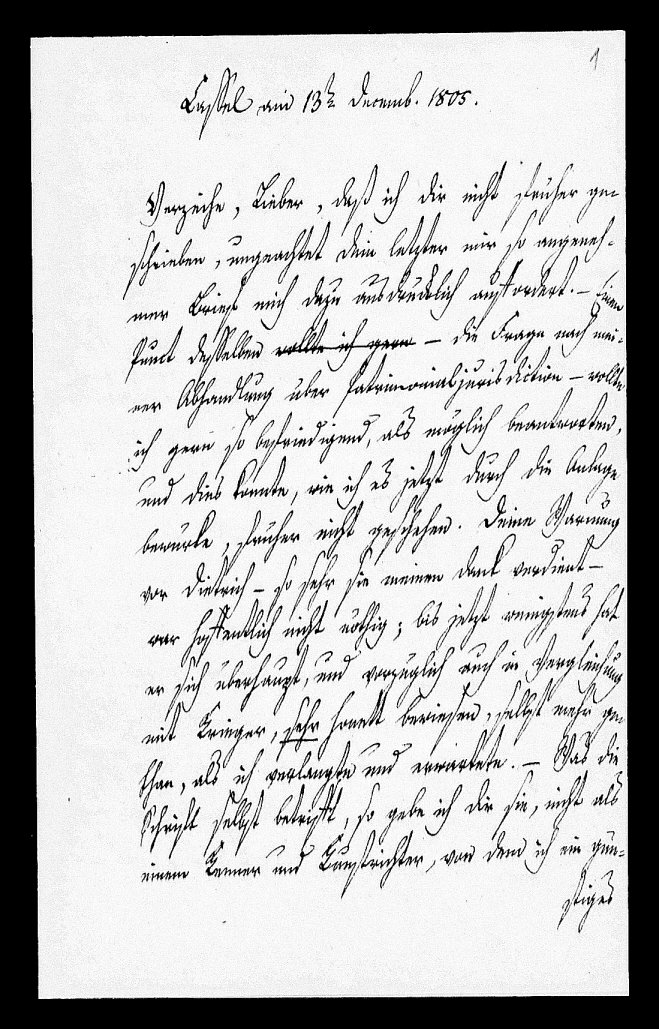 1
Cassel am 13t. Decemb. 1805.
Verzeihe, Lieber, daß ich dir nicht früher ge-
schrieben, ungeachtet dein letzter mir so angeneh-
mer Brief mich dazu ausdrücklich auffordert. – Einen
Punct desselben wollte ich gern – die Frage nach mei-
ner Abhandlung über Patrimonialjurisdiction – wollte
ich gern so befriedigend, als möglich beantworten,
und dies konnte, wie ich es jetzt durch die Anlage
bewürke, früher nicht geschehen. Deine Warnung
vor Dietrich – so sehr sie meinen Dank verdient –
war hoffentlich nicht nöthig; bis jetzt wenigstens hat
er sich überhaupt, und vorzüglich auch in Vergleichung
mit Krieger, sehr honett bewiesen, selbst mehr ge-
than, als ich verlangte und erwartete. – Was die
Schrift selbst betrifft, so gebe ich dir sie, nicht als
einem Kenner und Kunstrichter, von dem ich ein gün-
stiges